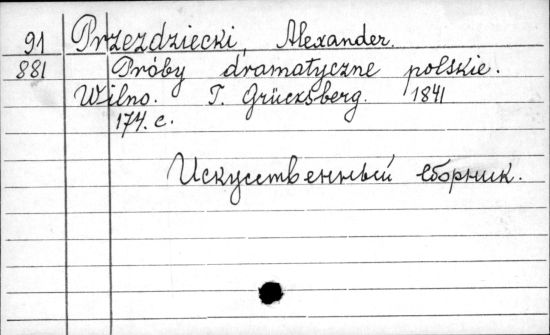 91 Przezdziecki, Alexander.
881 Próby dramatyczne polskie.
Wilno. T. Grücksberg. 1841
174. c.
Искусственный сборник.